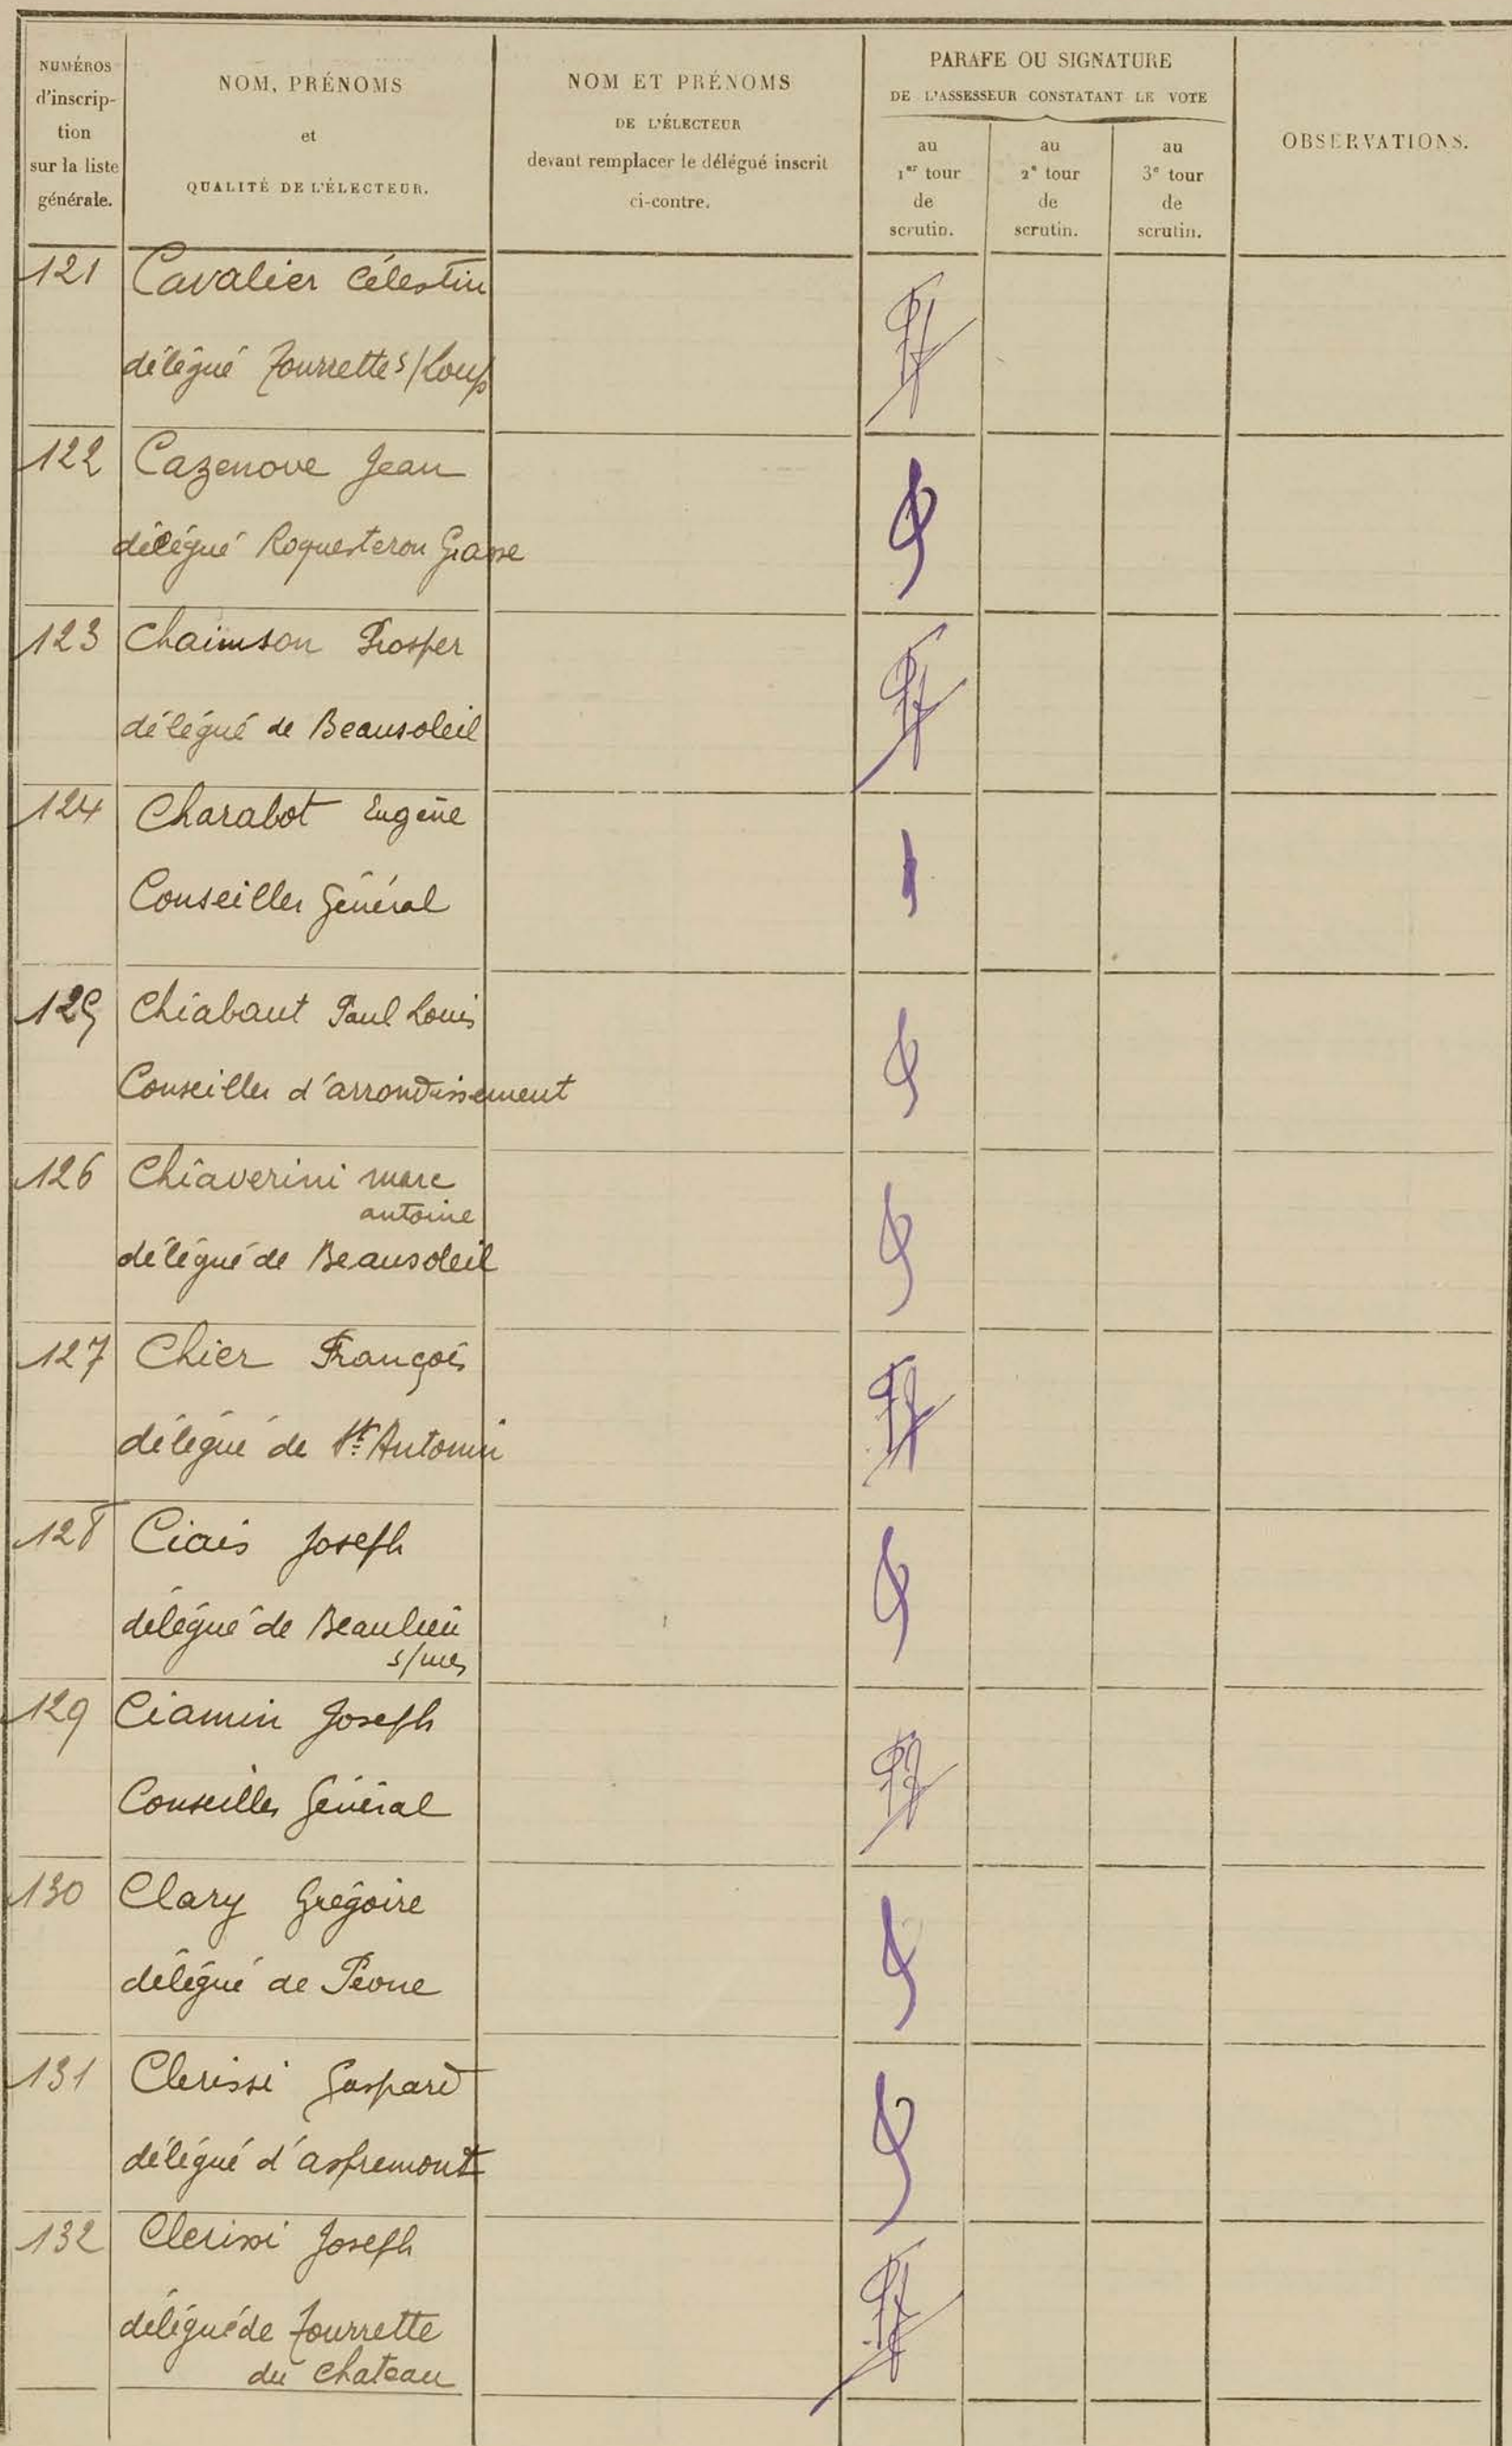 NUMÉROS
d'inscrip-
tion
sur la liste
générale.
NOM, PRÉNOMS
et
QUALITÉ DE L'ÉLECTEUR.
NOM ET PRÉNOMS
DE L'ÉLECTEUR
devant remplacer le délégué inscrit
ci-contre.
PARAFE OU SIGNATURE
DE L'ASSESSEUR CONSTATANT LE VOTE
au
1er tour
de
scrutin.
au
2e tour
de
scrutin.
au
3e tour
de
scrutin.
OBSERVATIONS.
121 Cavalier Célestin
délégué Tourrettes s/Loup
122 Cazenove Jean
délégué Roquesteron Grasse
123 Chaimson Prosper
délégué de Beausoleil
124 Charabot Eugène
Conseiller Général
125 Chiabaut Paul Louis
Conseiller d'arrondissement
126 Chiaverini marc
antoine
délégué de Beausoleil
127 Chier François
délégué de St. Antonin
128 Ciais Joseph
délégué de Beaulieu
s/mer
129 Ciamin Joseph
Conseiller Général
130 Clary Grégoire
délégué de Péone
131 Clerissi Gaspard
délégué d'aspremont
132 Clerissi Joseph
délégué de Tourrette
du Chateau